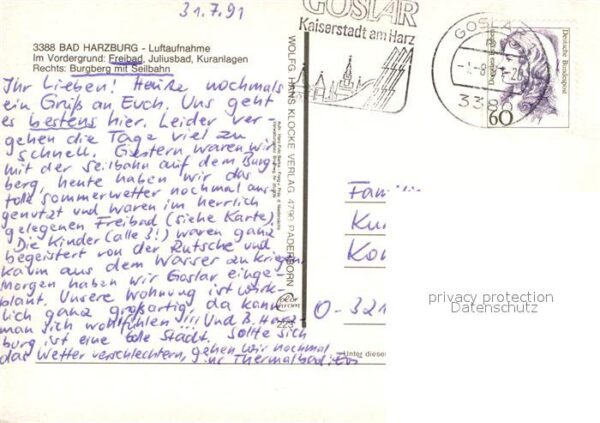 31.7.91
3388 BAD HARZBURG - Luftaufnahme
Im Vordergrund: Freibad, Juliusbad, Kuranlagen
Rechts: Burgberg mit Seilbahn
Ihr Lieben! Heute nochmals
ein Gruß an Euch. Uns geht
es bestens hier. Leider ver-
gehen die Tage viel zu
schnell. Gestern waren wir
mit der Seilbahn auf dem Burg-
berg, heute haben wir das
tolle Sommerwetter nochmal aus-
genutzt und waren im herrlich
gelegenen Freibad (siehe Karte)
Die Kinder (alle 3!) waren ganz
begeistert von der Rutsche und
kaum aus dem Wasser zu kriegen
Morgen haben wir Goslar einge-
plant. Unsere Wohnung ist wirk-
lich ganz großartig, da kann
man sich wohlfühlen!!! Und B. Harz-
burg ist eine tolle Stadt. Sollte sich
das Wetter verschlechtern, gehen wir nochmal
ins Thermalbad.
WOLFG. HANS KLOCKE VERLAG, 4790 PADERBORN
223
GOSLAR
Kaiserstadt am Harz
GOSLAR
338
Deutsche Bundespost
60
Fam
Ku
Ko
O-321
Unter diese
privacy protection
Datenschutz